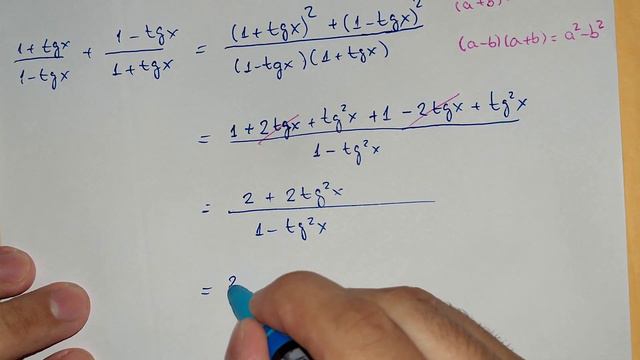 (a+b)
(1+tgx)² + (1-tgx)²
1+tgx/1-tgx + 1-tgx/1+tgx = (1+tgx)² + (1-tgx)²/(1-tgx)(1+tgx)
(a-b)(a+b) = a²-b²
= 1 + 2tgx + tg²x + 1 - 2tgx + tg²x/1 - tg²x
= 2 + 2tg²x/1 - tg²x
= 2